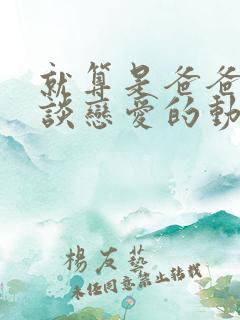 就算是爸爸
談戀愛的動
楊友藝
未经同意禁止转载